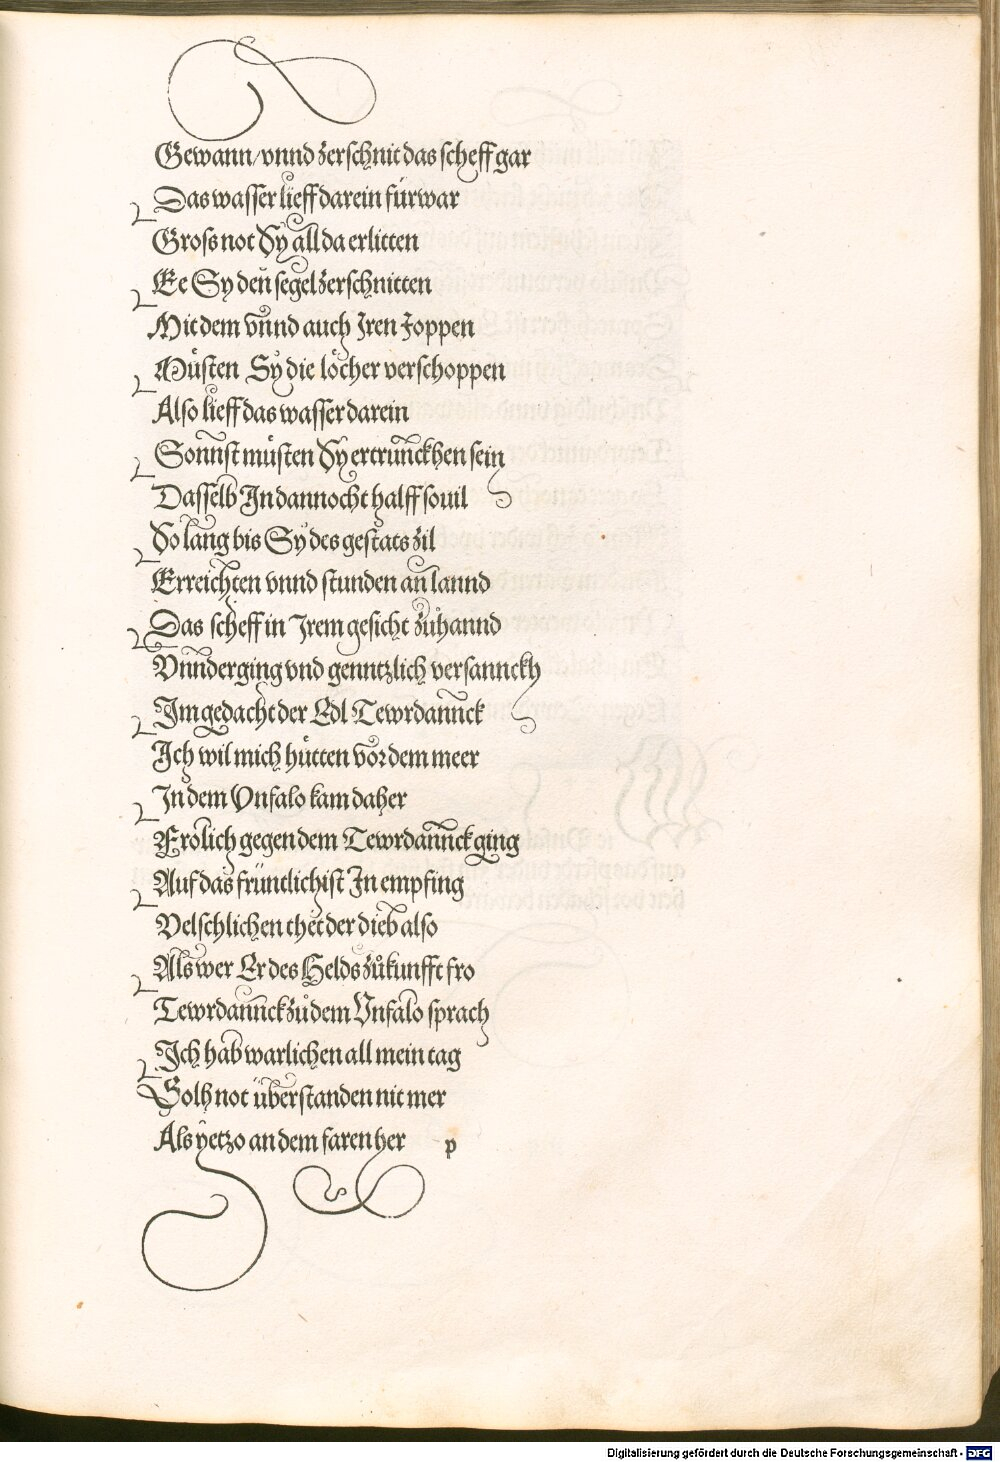 Gewann/vnnd zerschnit das scheff gar
Das wasser lieff darein fürwar
Gross not Sy all da erlitten
Ee Sy den segel zerschnitten
Mit dem vnnd auch Iren Joppen
Müsten Sy die löcher verschoppen
Also lieff das wasser darein
Sonnst müsten Sy ertrunckhen sein
Dasselb In dannocht halff souil
So lang bis Sy des gestats zil
Erreichten vnnd stunden an lannd
Das scheff in Irem gesicht zůhannd
Vnnderging vnd genntzlich versannckh
Im gedacht der Edl Tewrdannck
Ich wil mich hütten vor dem meer
In dem Vnfalo kam daher
Frölich gegen dem Tewrdannck ging
Auf das früntlichist In empfing
Velschlichen thet der dieb also
Als wer Er des Helds zůkunfft fro
Tewrdannck zů dem Vnfalo sprach
Ich hab warlichen all mein tag
Solh not überstanden nit mer
Als yetzo an dem faren her p
Digitalisierung gefördert durch die Deutsche Forschungsgemeinschaft - DFG